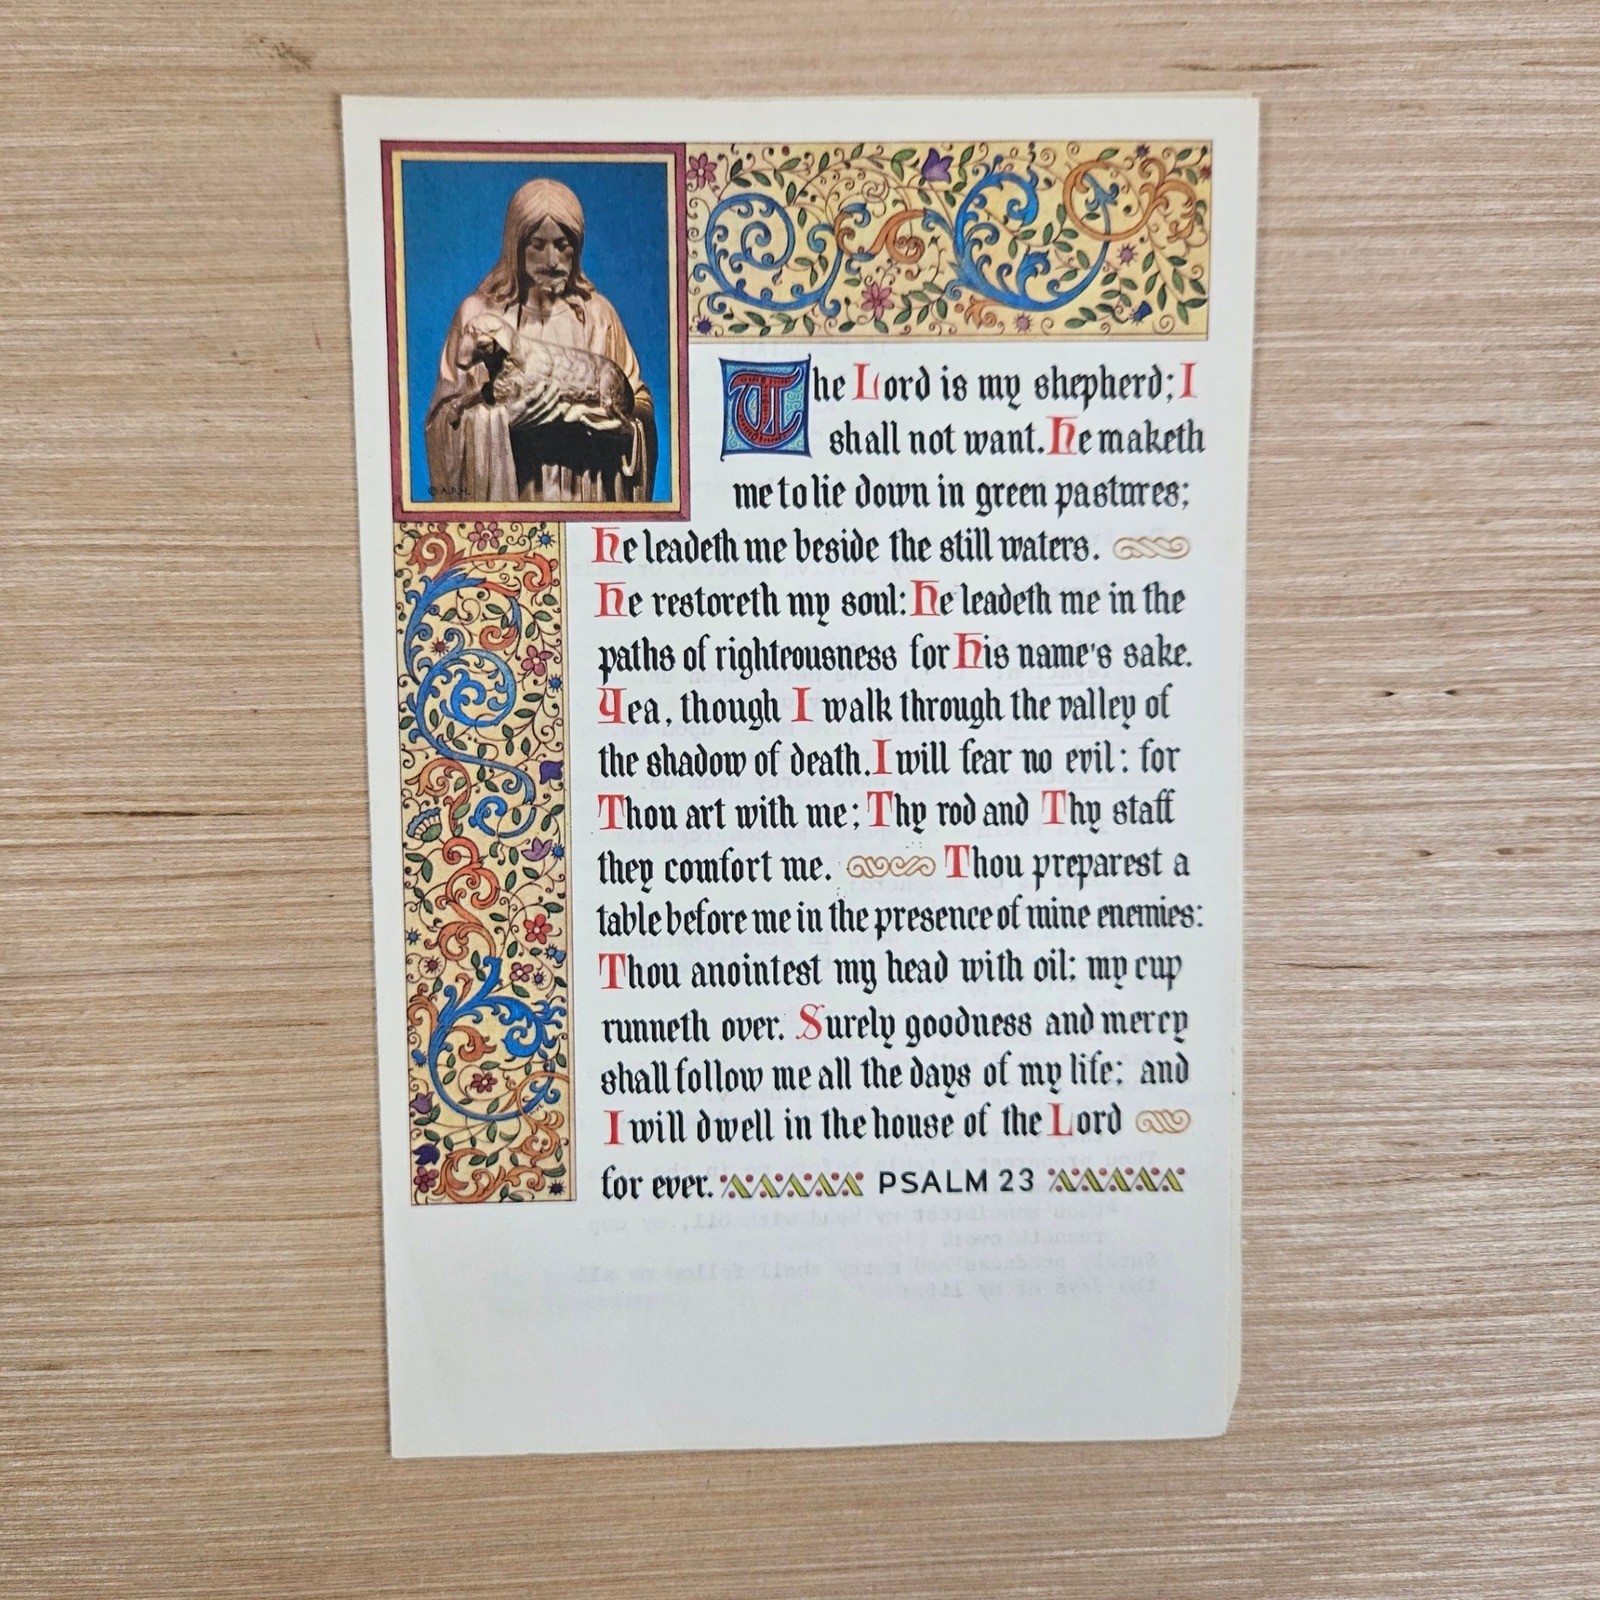 © A.P.H.
The Lord is my shepherd; I
shall not want. He maketh
me to lie down in green pastures;
He leadeth me beside the still waters.
He restoreth my soul: He leadeth me in the
paths of righteousness for His name's sake.
Yea, though I walk through the valley of
the shadow of death. I will fear no evil: for
Thou art with me; Thy rod and Thy staff
they comfort me. Thou preparest a
table before me in the presence of mine enemies:
Thou anointest my head with oil; my cup
runneth over. Surely goodness and mercy
shall follow me all the days of my life; and
I will dwell in the house of the Lord
for ever. PSALM 23